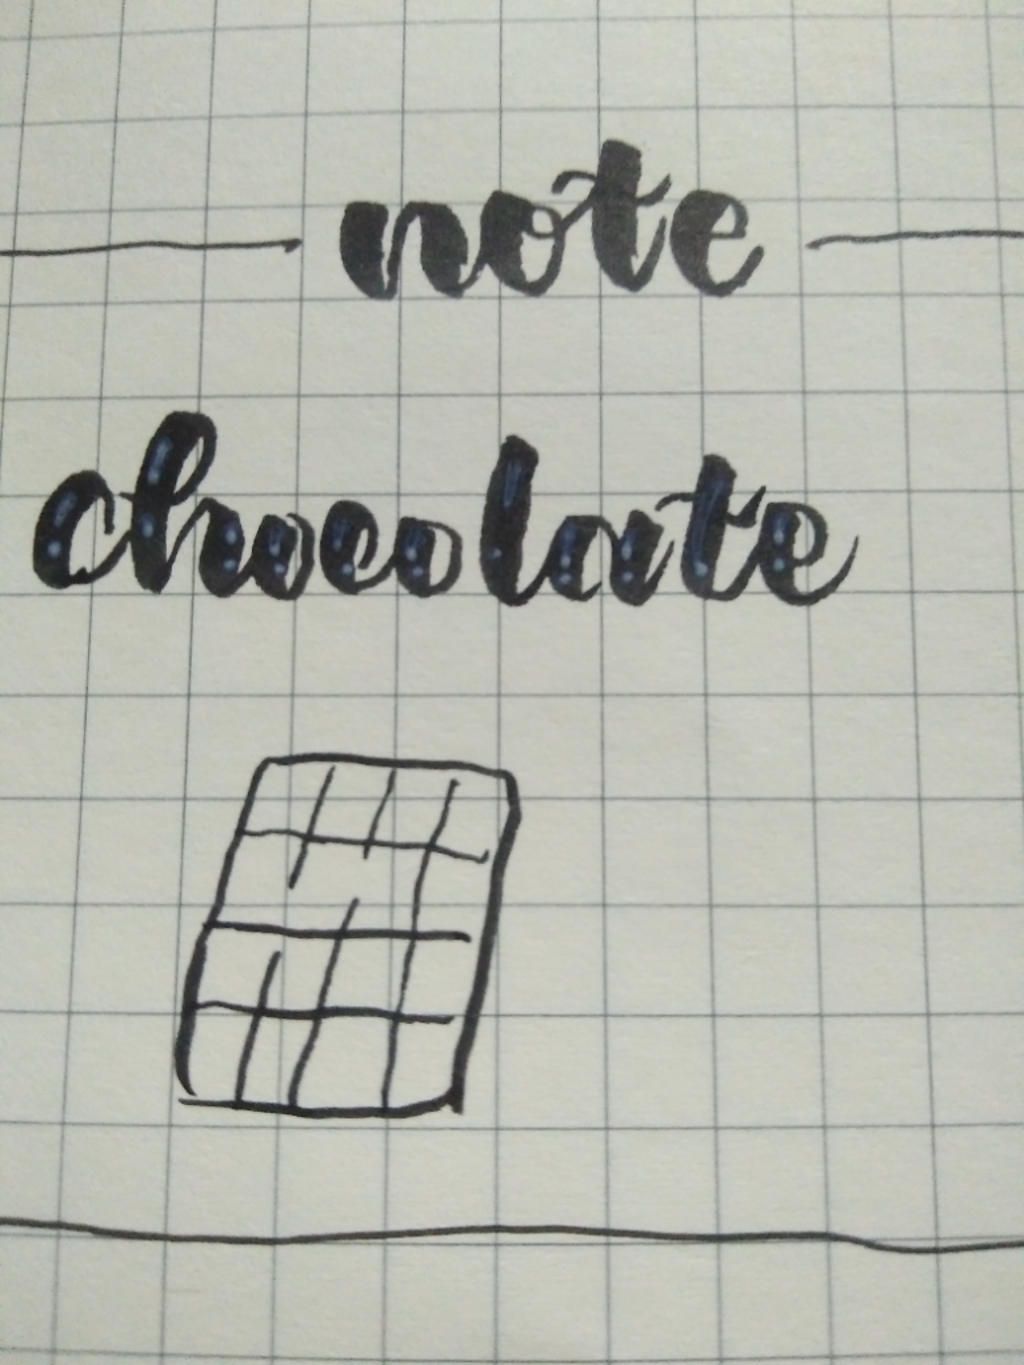 note
chocolate